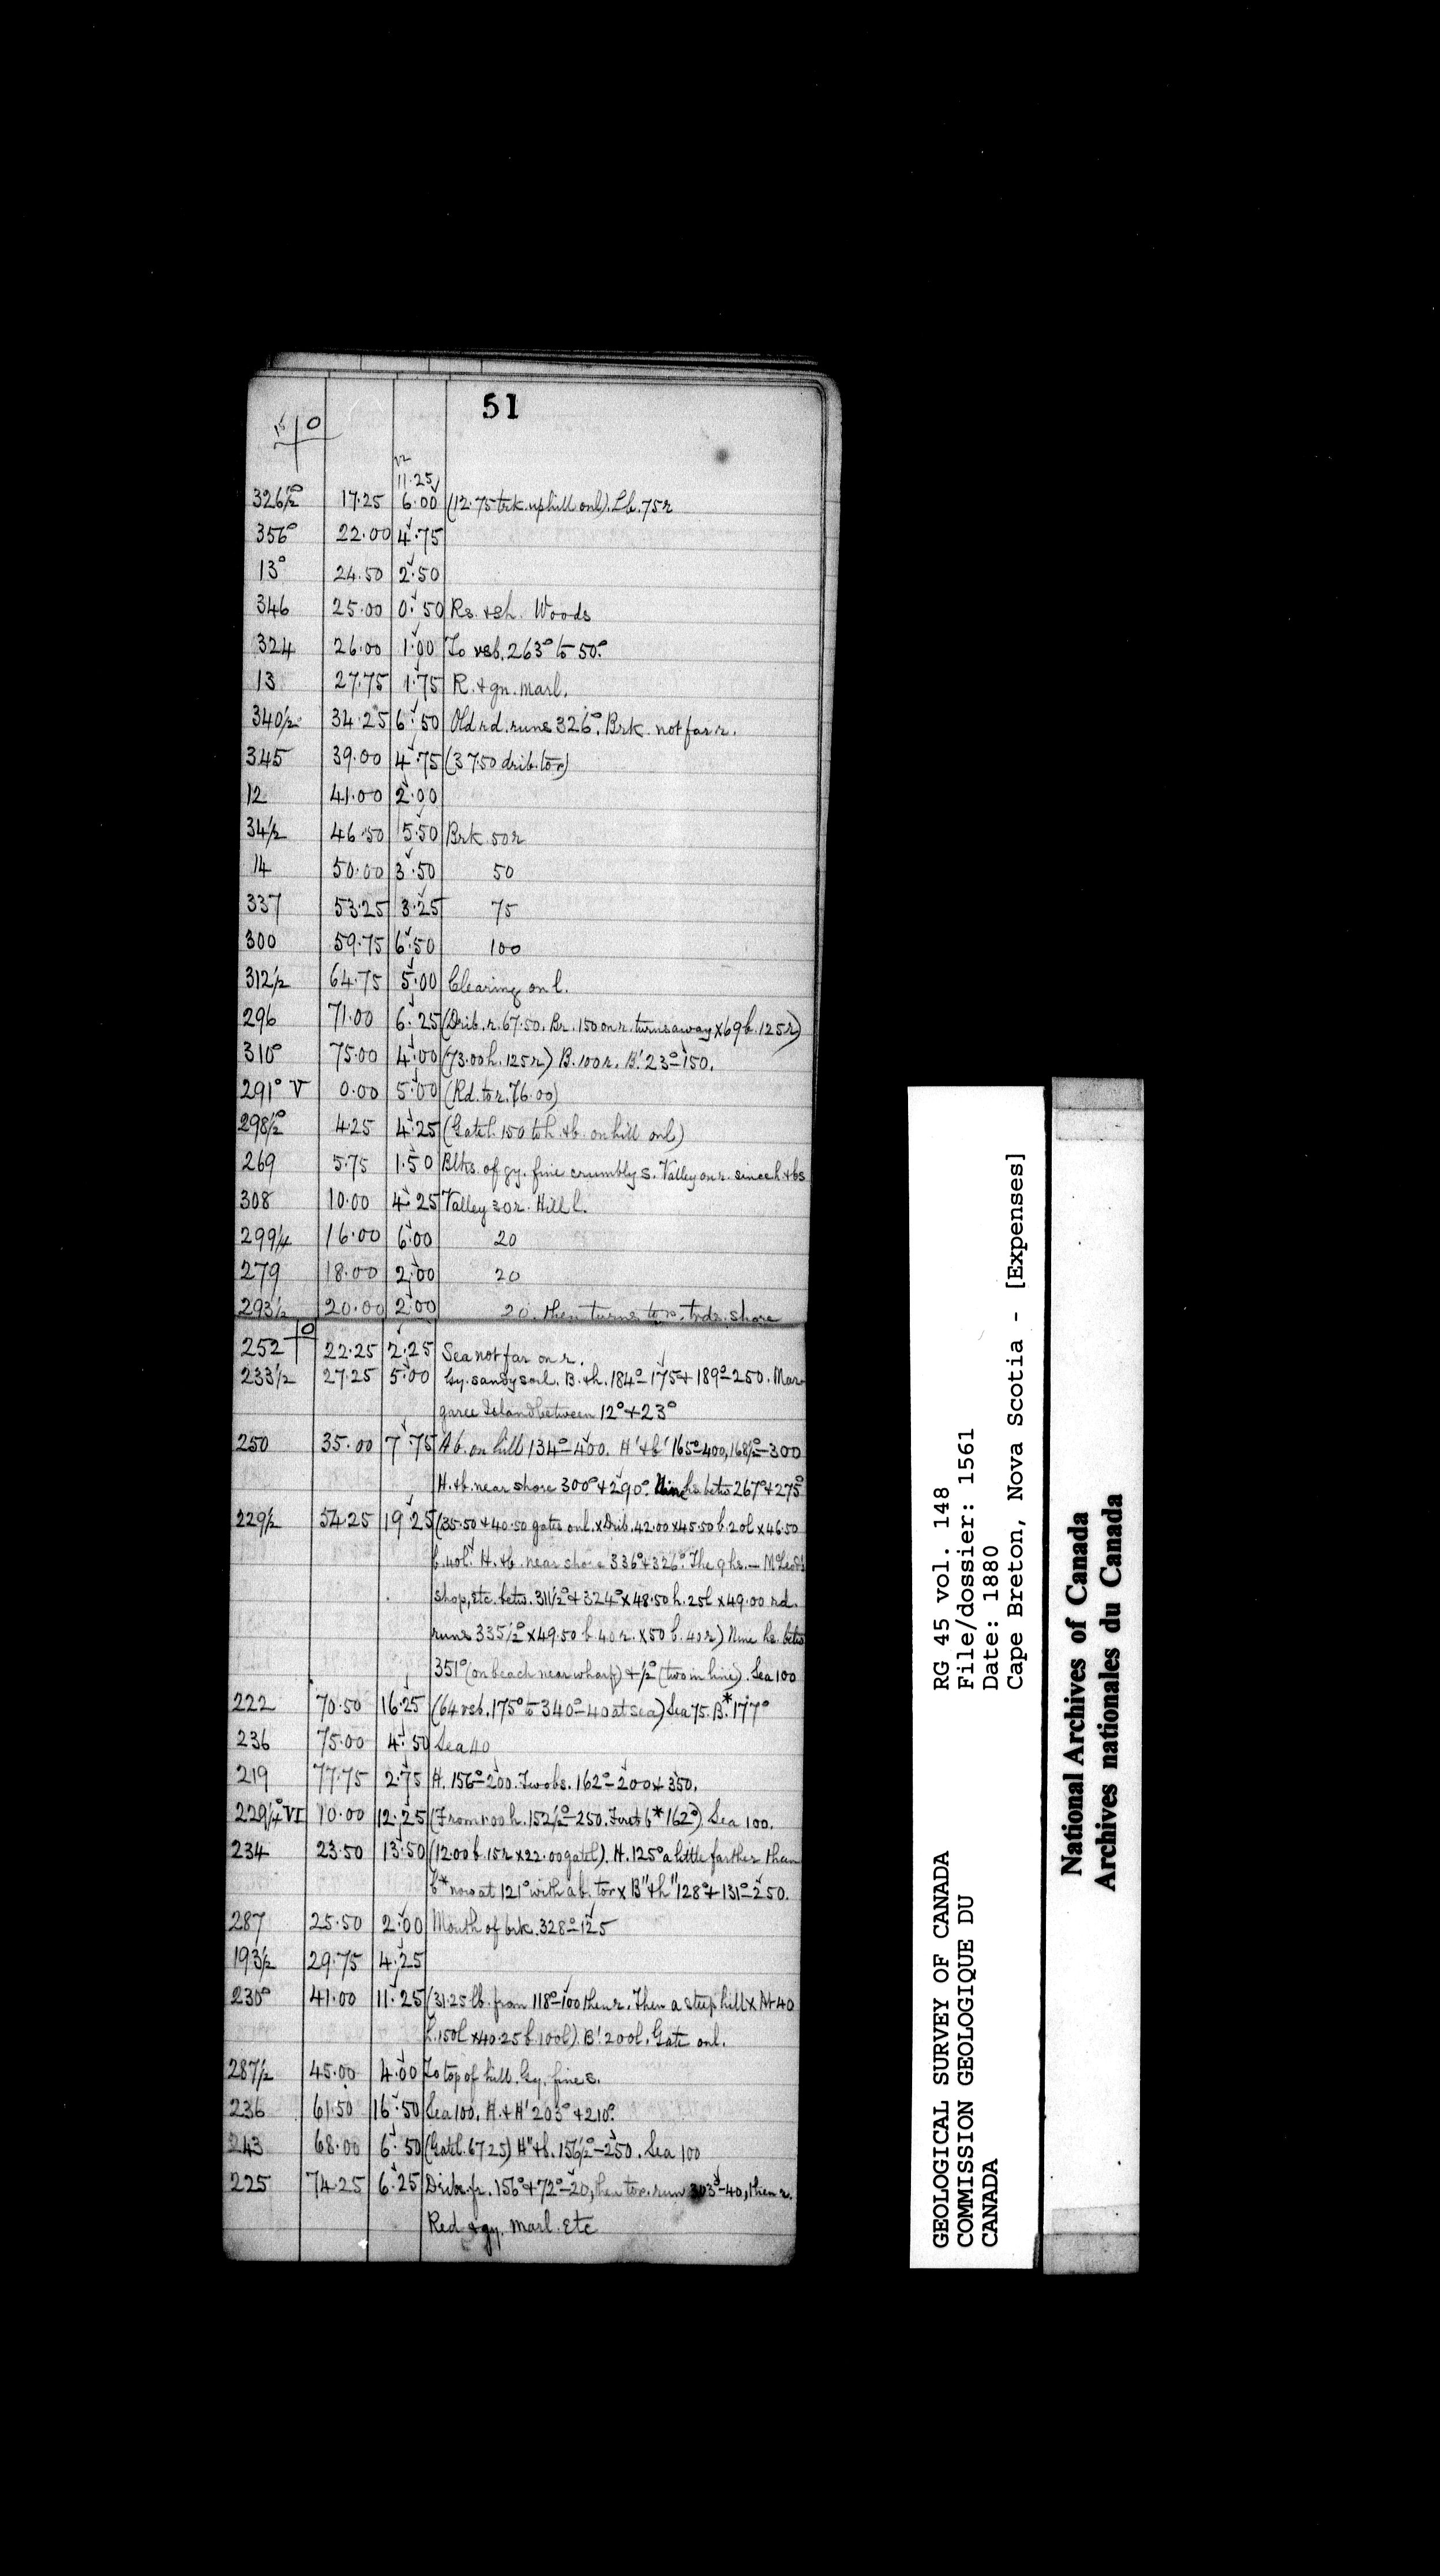 51
0
11.25
326½° 17.25 6.00 (12.75 trk. uphill on l). Lb. 75 r
356° 22.00 4.75
13° 24.50 2.50
346 25.00 0.50 Rs. & sh. Woods
324 26.00 1.00 To vsb. 263° to 50°.
13 27.75 1.75 R. & gn. marl.
340½ 34.25 6.50 Old rd. runs 326°. Brk. not far r.
345 39.00 4.75 (37.50 drib. to r)
12 41.00 2.00
34½ 46.50 5.50 Brk 50 r
14 50.00 3.50 50
337 53.25 3.25 75
300 59.75 6.50 100
312½ 64.75 5.00 Clearing on l.
296 71.00 6.25 (Drib. r. 67.50. Br. 150 on r. turns away x 69 b. 125 r)
310° 75.00 4.00 (73.00 h. 125 r) B. 100 r. B' 23°–150.
291° V 0.00 5.00 (Rd. to r. 76.00)
298½° 4.25 4.25 (Gate l. 150 to h. & b. on hill on l)
269 5.75 1.50 Blks. of gy. fine crumbly s. Valley on r. since h & bs
308 10.00 4.25 Valley 30 r. Hill l.
299¼ 16.00 6.00 20
279 18.00 2.00 20
293½ 20.00 2.00 20 then turns to r. trds. shore
0
252 22.25 2.25 Sea not far on r.
233½ 27.25 5.00 Gy. sandy soil. B. & h. 184°–175 & 189°–250. Mar-
garee Island between 12° & 23°
250 35.00 7.75 A b. on hill 134°–400. H' & b' 165°–400, 168½°–300
H. & b. near shore 300° & 290°. Nine hs. betw 267° & 275°
229½ 54.25 19.25 (35.50 & 40.50 gates on l. x Drib. 42.00 x 45.50 b. 20 l x 46.50
b. 40 l. H. & b. near shore 336° & 326°. The 9 hs. – McLeod's
shop, etc. betw. 311½° & 324° x 48.50 h. 25 l x 49.00 rd.
runs 335½° x 49.50 b. 40 r. x 50 b. 40 r) Nine hs. betw
351° (on beach near wharf) & ½° (two in line). Sea 100
222 70.50 16.25 (64 vsb. 175° to 340°–40 at sea) Sea 75. B.* 177°
236 75.00 4.50 Sea 40
219 77.75 2.75 H. 156°–200. Two bs. 162°–200 & 350.
229¼° VI 10.00 12.25 (From 1.00 h. 152½°–250. First b* 162°). Sea 100.
234 23.50 13.50 (12.00 b. 15 r x 22.00 gate l). H. 125° a little farther than
b* now at 121° with a b. to r x B" & h" 128° & 131°–250.
287 25.50 2.00 Mouth of brk. 328°–125
193½ 29.75 4.25
230° 41.00 11.25 (31.25 lb. from 118°–100 then r. Then a steep hill x At 40
h. 150 l x 40.25 b. 100 l) B' 200 l. Gate on l.
287½ 45.00 4.00 To top of hill. Gy. fine s.
236 61.50 16.50 Sea 100. H. & H' 203° & 210°.
243 68.00 6.50 (Gate l. 67.25) H" & b. 156½°–250. Sea 100
225 74.25 6.25 Dribs. fr. 156° & 72°–20, then to r. run 303°–40, then r.
Red & gy. marl. Etc
GEOLOGICAL SURVEY OF CANADA
COMMISSION GEOLOGIQUE DU
CANADA
RG 45 vol. 148
File/dossier: 1561
Date: 1880
Cape Breton, Nova Scotia - [Expenses]
National Archives of Canada
Archives nationales du Canada